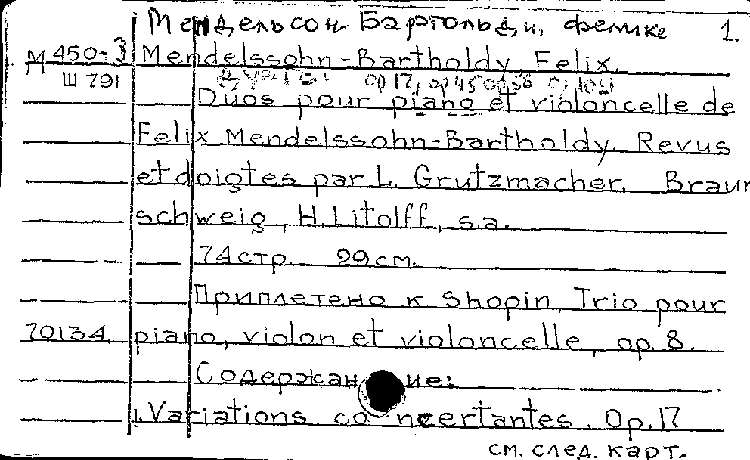 Мендельсон Бартольди, феликс 1.
М 450-3 Mendelssohn-Bartholdy, Felix.
Ш 791 op 17, op 45 op 58
Duos pour piano et violoncelle de
Felix Mendelssohn-Bartholdy. Revus
et doigtes par L. Grutzmacher. Braun
schweig, H. Litolff, s.a.
74 стр. 29 см.
Приплетено к Shopin, Trio pour
70134 piano, violon et violoncelle, op. 8.
Содержание:
1. Variations concertantes. Op. 17
см. след. карт.